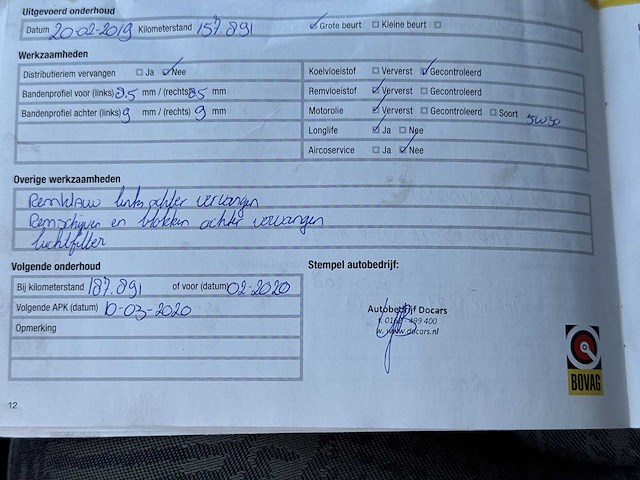 Uitgevoerd onderhoud
Datum 20-02-2019 Kilometerstand 157.891 Grote beurt Kleine beurt
Werkzaamheden
Distributieriem vervangen Ja Nee
Bandenprofiel voor (links) 8.5 mm / (rechts) 8.5 mm
Bandenprofiel achter (links) 9 mm / (rechts) 9 mm
Koelvloeistof Ververst Gecontroleerd
Remvloeistof Ververst Gecontroleerd
Motorolie Ververst Gecontroleerd Soort 5W30
Longlife Ja Nee
Aircoservice Ja Nee
Overige werkzaamheden
Remklauw links achter vervangen
Remschijven en blokken achter vervangen
luchtfilter
Volgende onderhoud
Bij kilometerstand 187.891 of voor (datum) 02-2020
Volgende APK (datum) 10-03-2020
Opmerking
Stempel autobedrijf:
Autobedrijf Docars
499 400
www.docars.nl
BOVAG
12